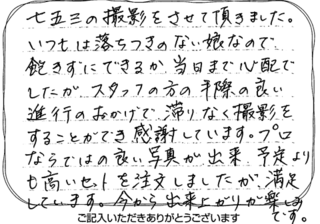 七五三の撮影をさせて頂きました。
いつもは落ちつきのない娘なので
飽きずにできるか当日まで心配で
したが、スタッフの方の手際の良い
進行のおかげで滞りなく撮影を
することができ感謝しています。プロ
ならではの良い写真が出来、予定より
も高いセットを注文しましたが、満足
しています。今から出来上がりが楽しみ
です。
ご記入いただきありがとうございます